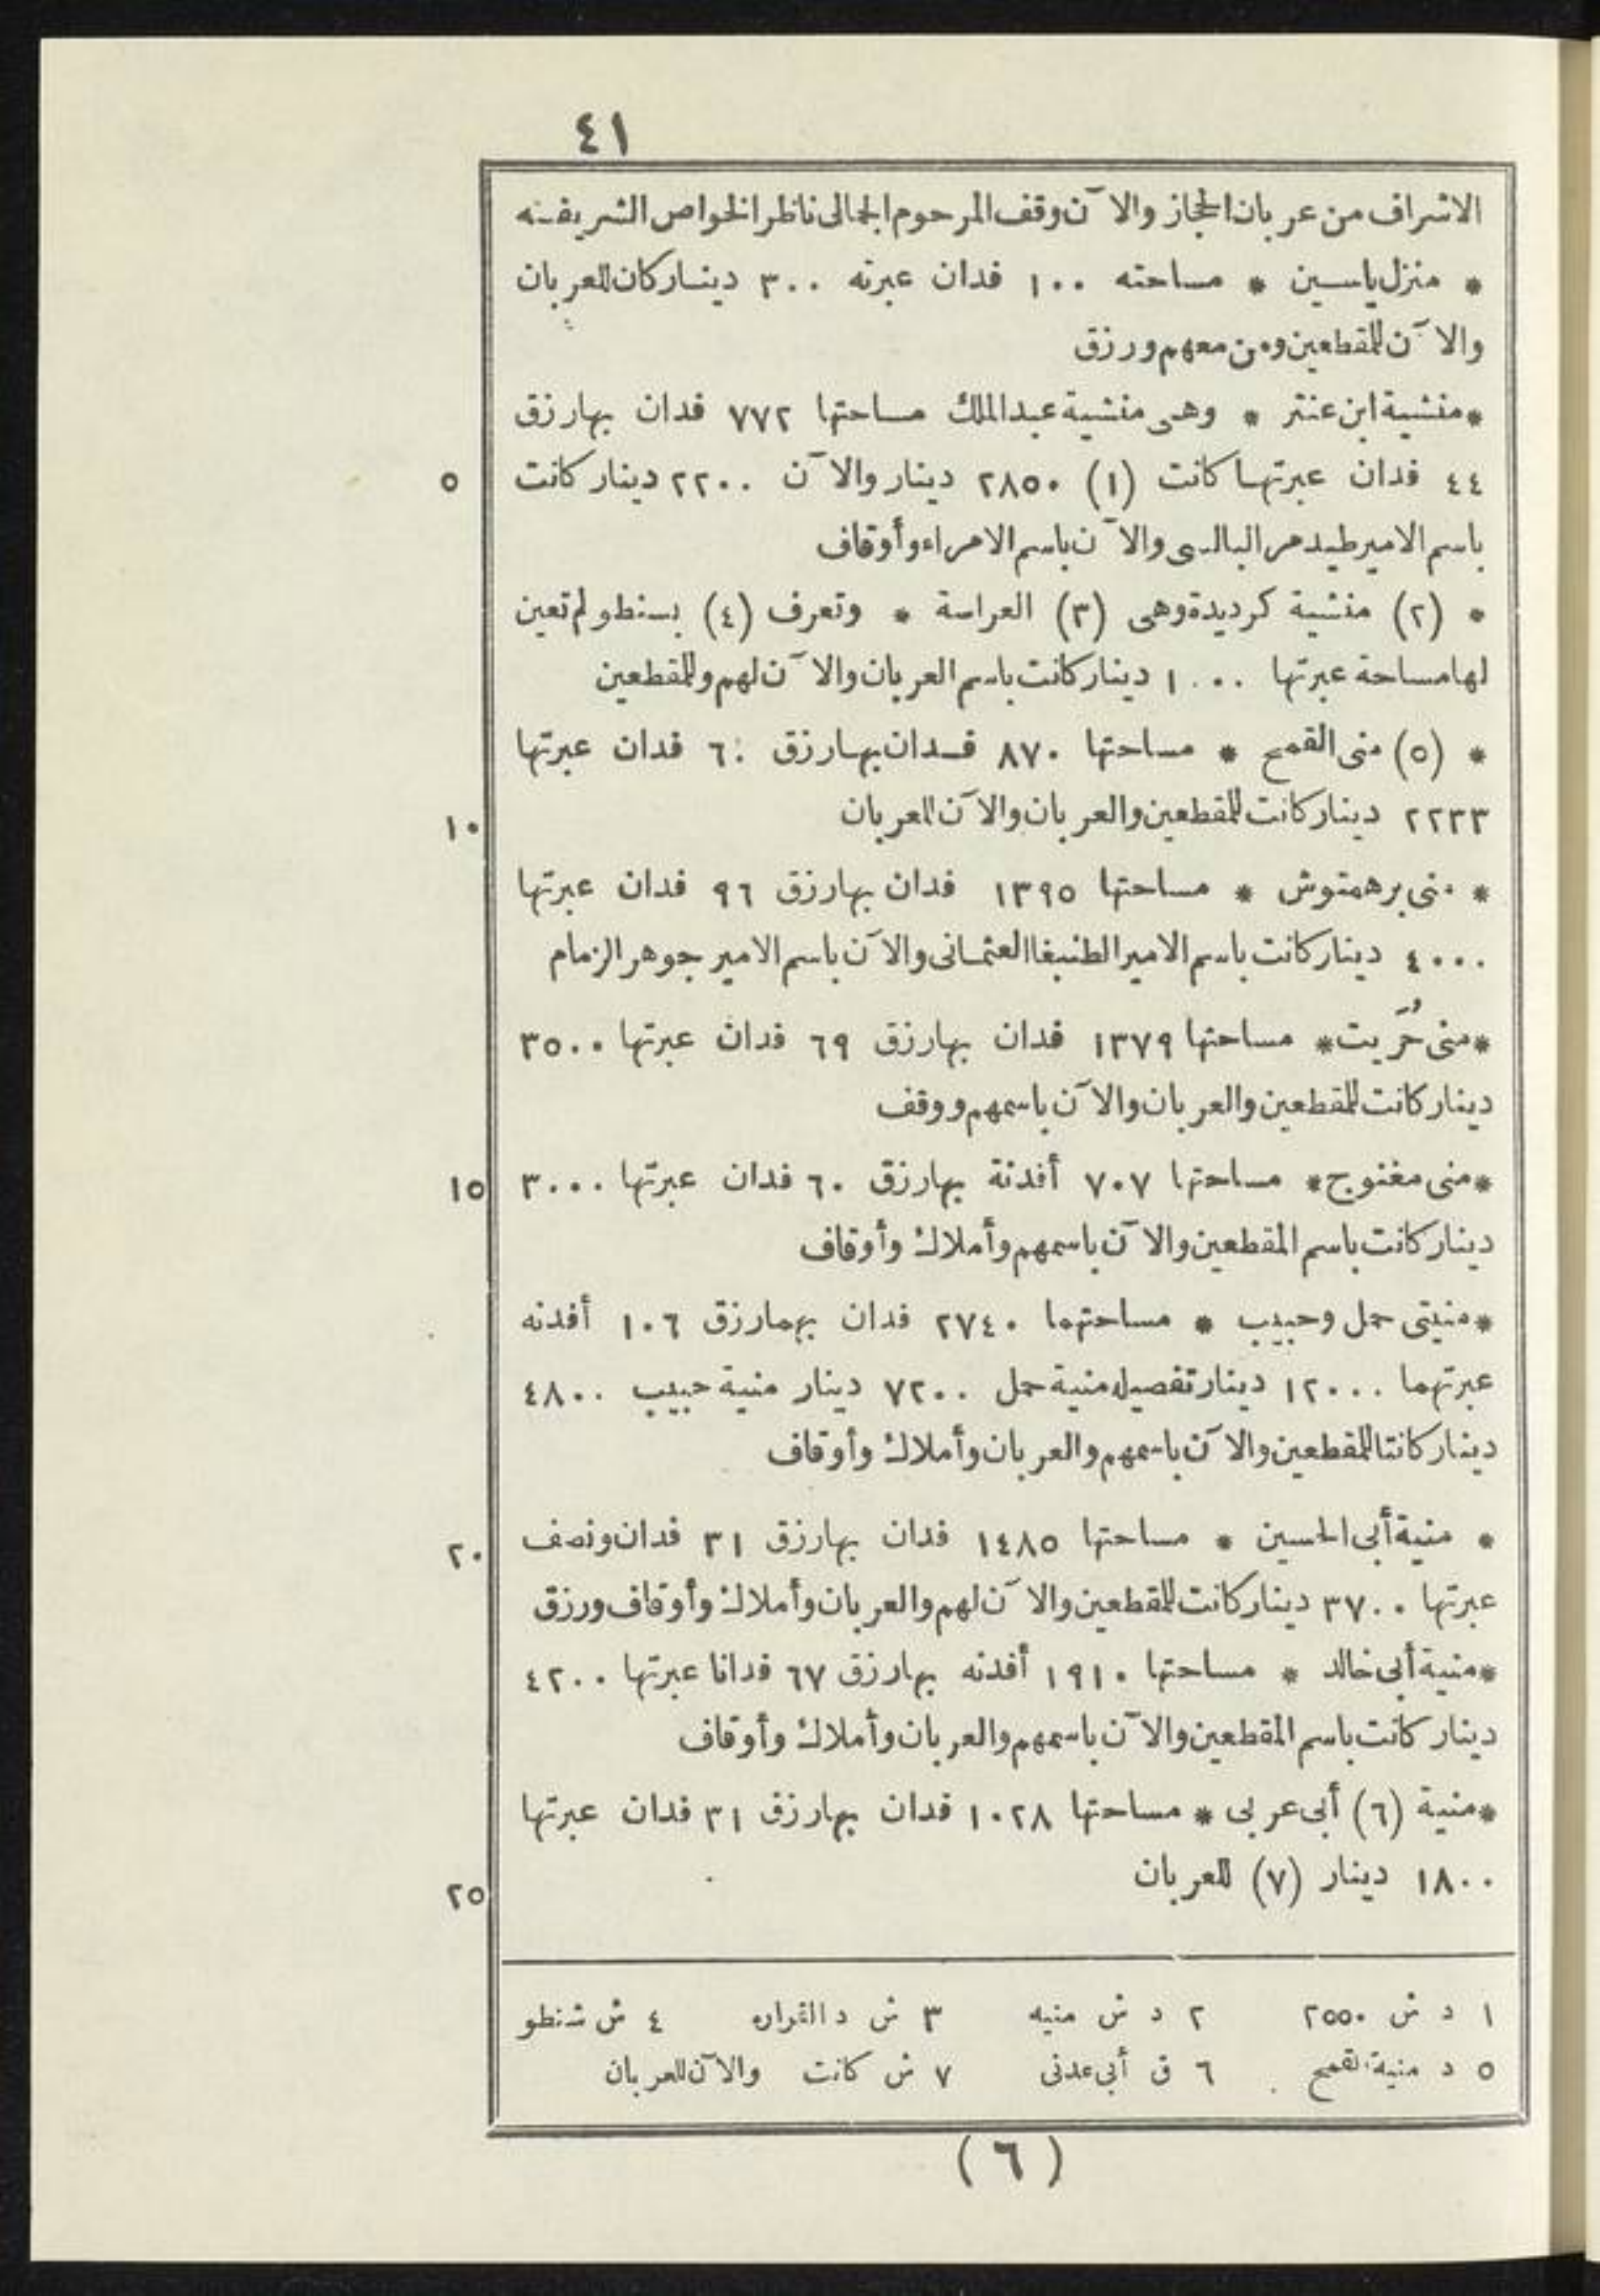 ٤١
الاشراف من عربان الحجاز والآن وقف المرحوم الجمالى ناظر الخواص الشريفه
* منزل ياسين * مساحته ١٠٠ فدان عبرته ٣٠٠ دينار كان للعربان
والآن للمقطعين ومن معهم ورزق
* منشية ابن عنتر * وهى منشية عبد الملك مساحتها ٧٧٢ فدان بها رزق
٤٤ فدان عبرتها كانت (١) ٢٨٥٠ دينار والآن ٢٢٠٠ دينار كانت ٥
باسم الامير طيدمر البالسى والآن باسم الامراء وأوقاف
* (٢) منشية كرديدة وهى (٣) العراسة * وتعرف (٤) بسنطو لم تعين
لها مساحة عبرتها ١٠٠٠ دينار كانت باسم العربان والآن لهم وللمقطعين
* (٥) منى القمح * مساحتها ٨٧٠ فدان بها رزق ٦٠ فدان عبرتها
٢٢٣٣ دينار كانت للمقطعين والعربان والآن للعربان ١٠
* منى برهمتوش * مساحتها ١٣٩٥ فدان بها رزق ٩٦ فدان عبرتها
٤٠٠٠ دينار كانت باسم الامير الطنبغا العثمانى والآن باسم الامير جوهر الزمام
* منى حُرَيت * مساحتها ١٣٧٩ فدان بها رزق ٦٩ فدان عبرتها ٣٥٠٠
دينار كانت للمقطعين والعربان والآن باسمهم ووقف
* منى مغنوج * مساحتها ٧٠٧ أفدنة بها رزق ٦٠ فدان عبرتها ٣٠٠٠ ١٥
دينار كانت باسم المقطعين والآن باسمهم وأملاك وأوقاف
* منيتى حمل وحبيب * مساحتهما ٢٧٤٠ فدان بهما رزق ١٠٦ أفدنه
عبرتهما ١٢٠٠٠ دينار تفصيله منية حمل ٧٢٠٠ دينار منية حبيب ٤٨٠٠
دينار كانتا للمقطعين والآن باسمهم والعربان وأملاك وأوقاف
* منية أبى الحسين * مساحتها ١٤٨٥ فدان بها رزق ٣١ فدان ونصف ٢٠
عبرتها ٣٧٠٠ دينار كانت للمقطعين والآن لهم والعربان وأملاك وأوقاف ورزق
* منية أبى خالد * مساحتها ١٩١٠ أفدنه بها رزق ٦٧ فدانا عبرتها ٤٢٠٠
دينار كانت باسم المقطعين والآن باسمهم والعربان وأملاك وأوقاف
* منية (٦) أبى عربى * مساحتها ١٠٢٨ فدان بها رزق ٣١ فدان عبرتها
١٨٠٠ دينار (٧) للعربان ٢٥
١ د ش ٢٥٥٠ ٢ د ش منيه ٣ ش د القراره ٤ ش شنطو
٥ د منية القمح ٦ ق أبى عدنى ٧ ش كانت والآن للعربان
(٦)